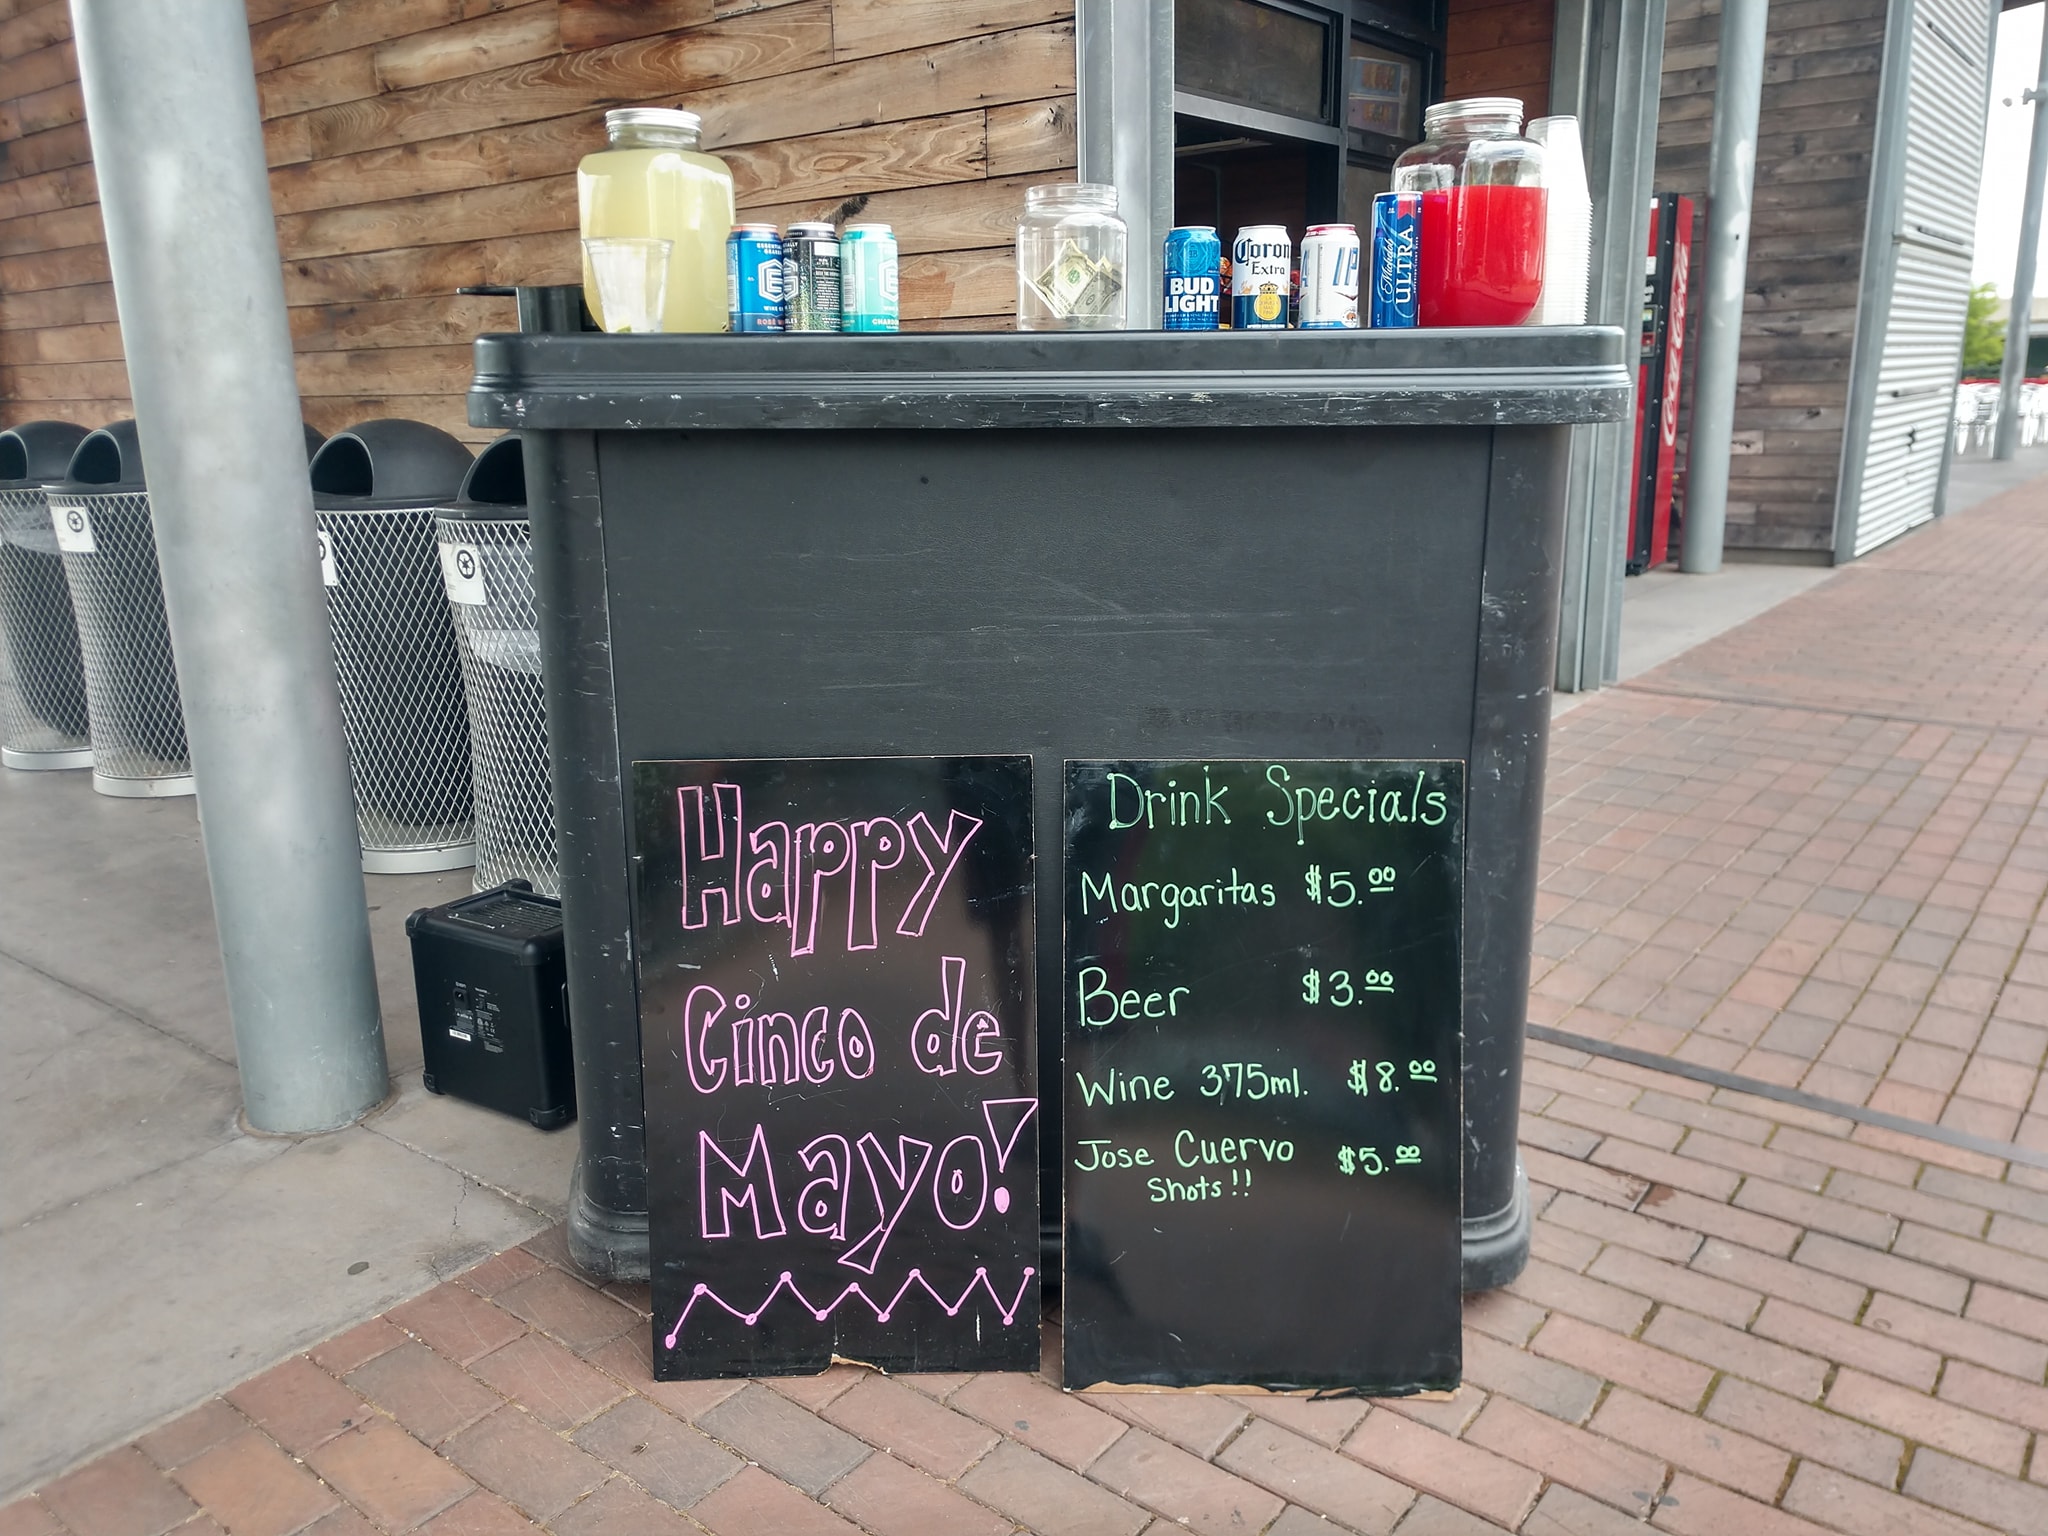 BUD
LIGHT
Corona
Extra
IP
Michelob
ULTRA
Coca-Cola
Happy
Cinco de
Mayo!
Drink Specials
Margaritas $5.00
Beer $3.00
Wine 375ml. $8.00
Jose Cuervo $5.00
Shots!!